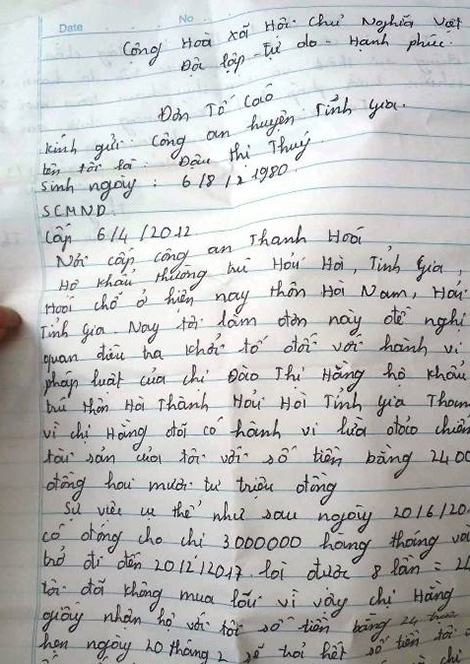 Date No
Công Hoà xã Hội Chủ Nghĩa Việt
Độc lập - Tự do - Hạnh phúc.
Đơn Tố Cáo
Kính gửi Công an huyện Tỉnh Gia.
tên tôi là: Đậu thị Thuý
Sinh ngày: 6/8/1980.
SCMND:
Cấp 6/4/2012
Nơi cấp công an Thanh Hoá
Hộ khẩu thường trú Hải Hà, Tỉnh Gia,
Hoá chỗ ở hiện nay thôn Hà Nam, Hải
Tỉnh Gia. Nay tôi làm đơn này đề nghị
quan điều tra khởi tố đối với hành vi
pháp luật của chị Đào Thị Hằng hộ khẩu
trú thôn Hà Thành Hải Hà Tỉnh Gia Than
vì chị Hằng đã có hành vi lừa đảo chiếm
tài sản của tôi với số tiền bằng 2400
đồng hai mươi tư triệu đồng
Sự việc cụ thể như sau ngày 20/6/20
có đóng cho chị 3000000 hàng tháng và
trở đi đến 20/12/2017. là được 8 lần = 24
tôi đã không mua lãi vì vậy chị Hằng
giấy nhận nợ với tôi số tiền bằng 24 triệu
hẹn ngày 20 tháng 2 sẽ trả hết số tiền tôi